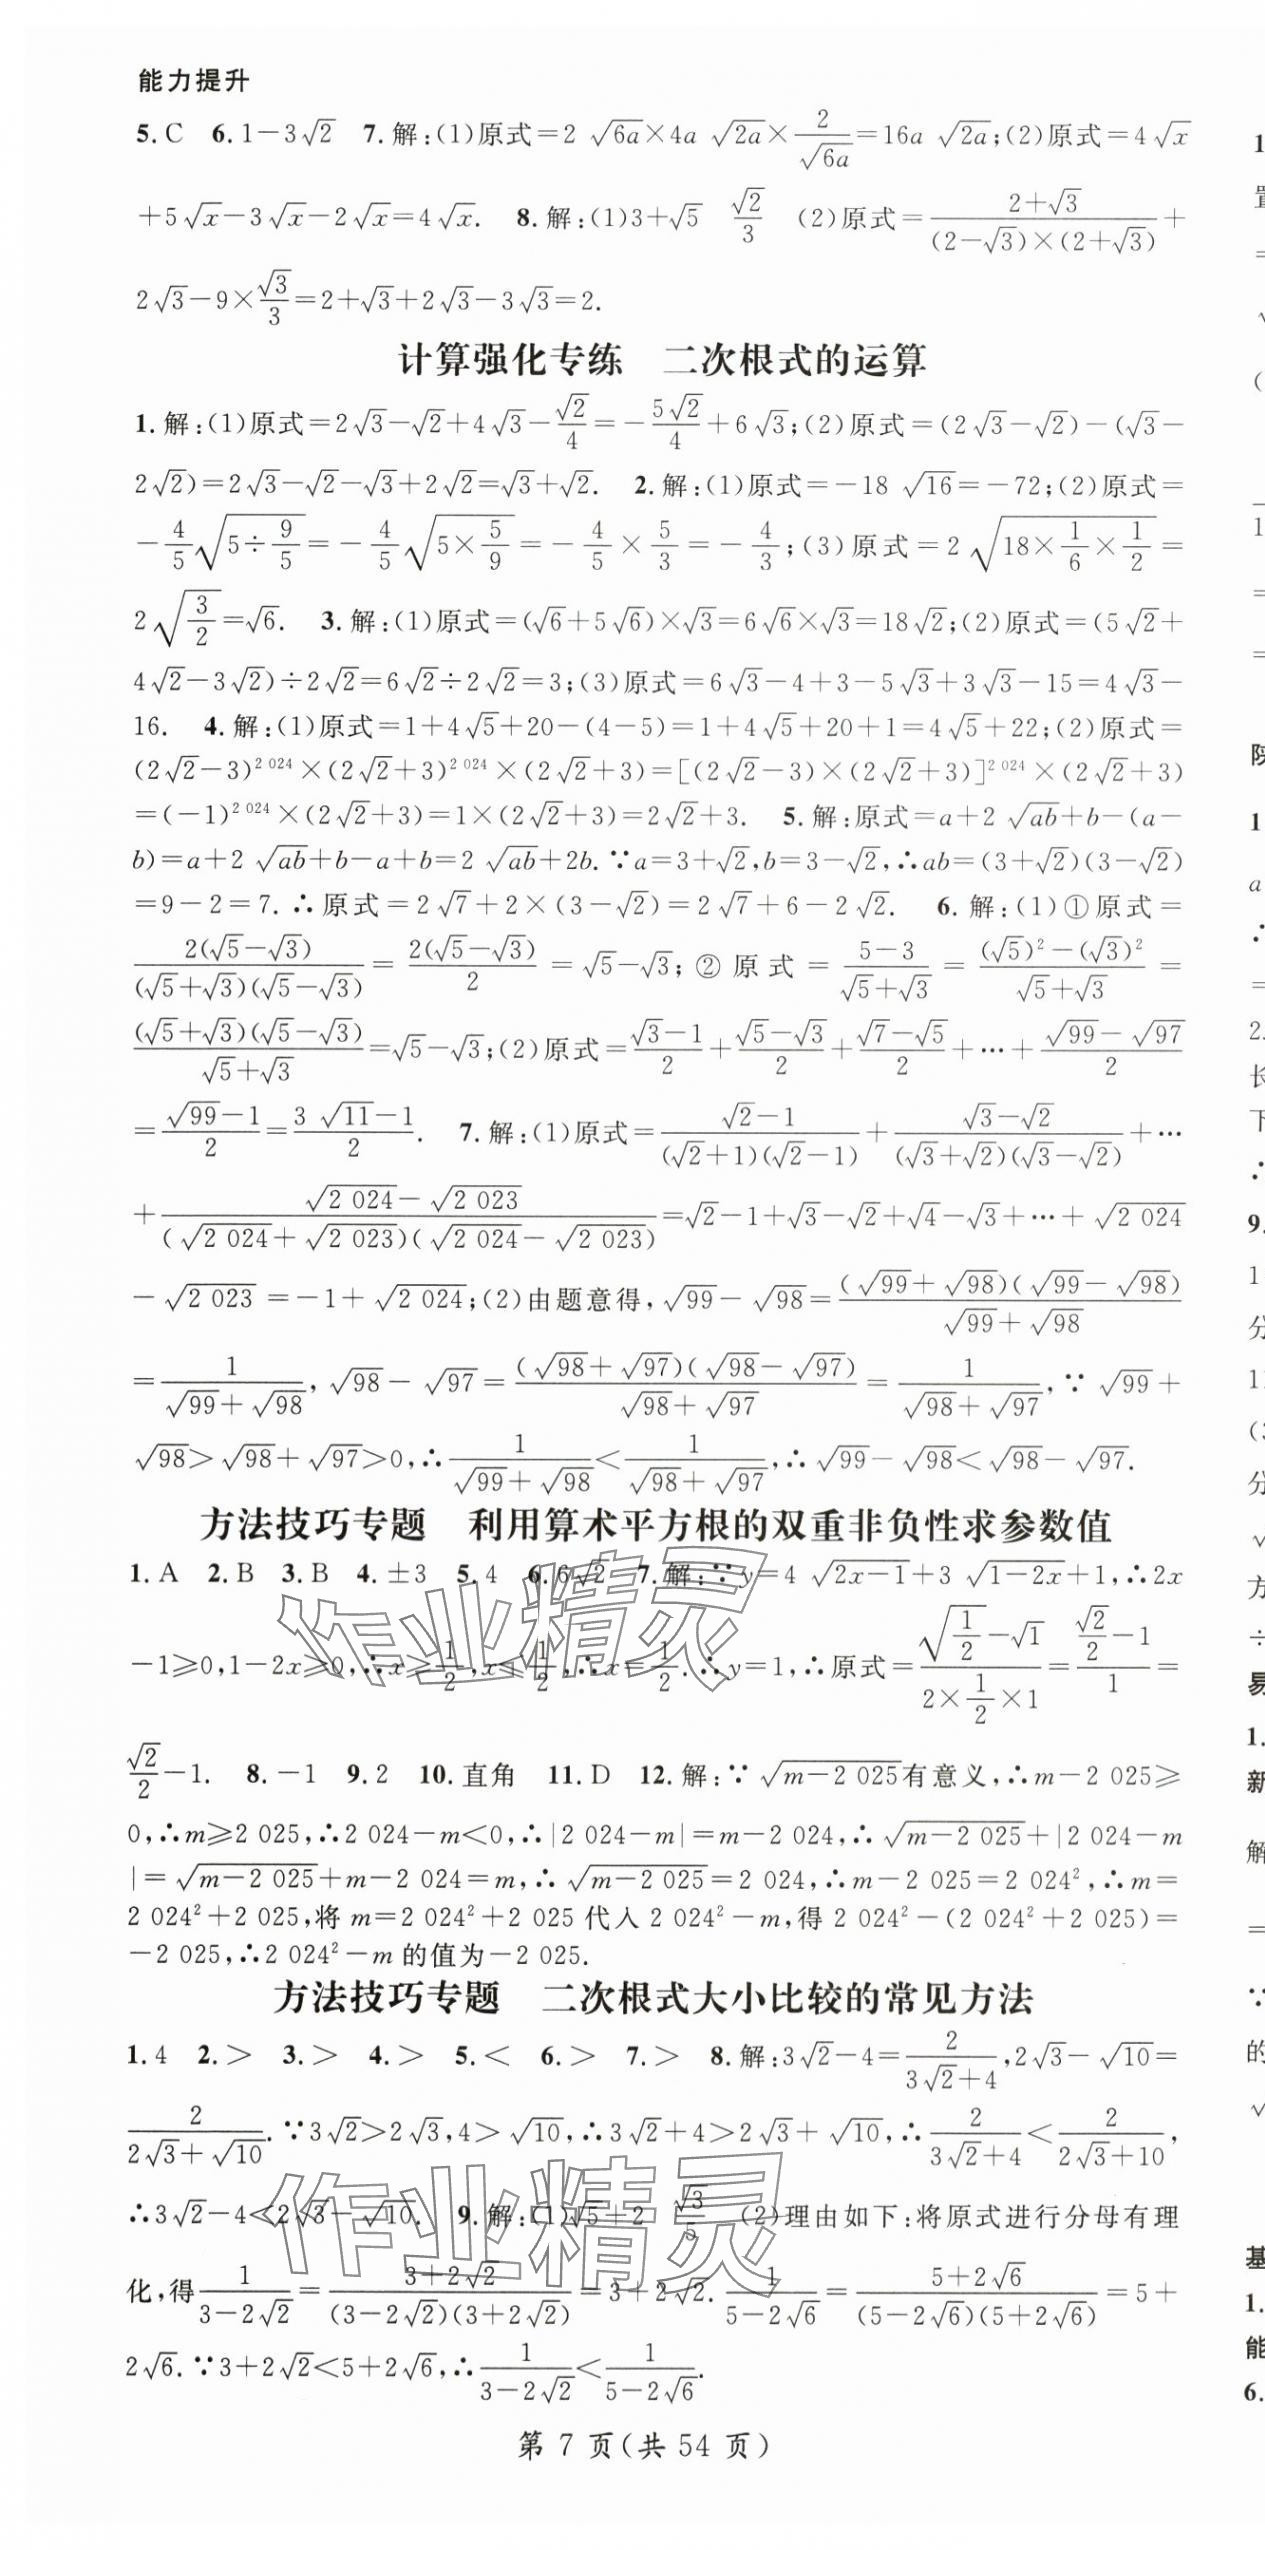 能力提升
5. C 6. 1-3√2 7. 解:(1)原式=2√(6a)×4a√(2a)×2/√(6a)=16a√(2a);(2)原式=4√x
+5√x-3√x-2√x=4√x. 8. 解:(1)3+√5 √2/3 (2)原式=(2+√3)/((2-√3)×(2+√3))+
2√3-9×√3/3=2+√3+2√3-3√3=2.
计算强化专练 二次根式的运算
1. 解:(1)原式=2√3-√2+4√3-√2/4=-5√2/4+6√3;(2)原式=(2√3-√2)-(√3-
2√2)=2√3-√2-√3+2√2=√3+√2. 2. 解:(1)原式=-18√16=-72;(2)原式=
-4/5√(5÷9/5)=-4/5√(5×5/9)=-4/5×5/3=-4/3;(3)原式=2√(18×1/6×1/2)=
2√(3/2)=√6. 3. 解:(1)原式=(√6+5√6)×√3=6√6×√3=18√2;(2)原式=(5√2+
4√2-3√2)÷2√2=6√2÷2√2=3;(3)原式=6√3-4+3-5√3+3√3-15=4√3-
16. 4. 解:(1)原式=1+4√5+20-(4-5)=1+4√5+20+1=4√5+22;(2)原式=
(2√2-3)²⁰²⁴×(2√2+3)²⁰²⁴×(2√2+3)=[(2√2-3)×(2√2+3)]²⁰²⁴×(2√2+3)
=(-1)²⁰²⁴×(2√2+3)=1×(2√2+3)=2√2+3. 5. 解:原式=a+2√(ab)+b-(a-
b)=a+2√(ab)+b-a+b=2√(ab)+2b. ∵a=3+√2,b=3-√2,∴ab=(3+√2)(3-√2)
=9-2=7. ∴原式=2√7+2×(3-√2)=2√7+6-2√2. 6. 解:(1)①原式=
2(√5-√3)/((√5+√3)(√5-√3))=2(√5-√3)/2=√5-√3;②原式=(5-3)/(√5+√3)=((√5)²-(√3)²)/(√5+√3)=
(√5+√3)(√5-√3)/(√5+√3)=√5-√3;(2)原式=(√3-1)/2+(√5-√3)/2+(√7-√5)/2+…+(√99-√97)/2
=(√99-1)/2=(3√11-1)/2. 7. 解:(1)原式=(√2-1)/((√2+1)(√2-1))+(√3-√2)/((√3+√2)(√3-√2))+…
+(√2 024-√2 023)/((√2 024+√2 023)(√2 024-√2 023))=√2-1+√3-√2+√4-√3+…+√2 024
-√2 023=-1+√2 024;(2)由题意得,√99-√98=(√99+√98)(√99-√98)/(√99+√98)
=1/(√99+√98),√98-√97=(√98+√97)(√98-√97)/(√98+√97)=1/(√98+√97),∵√99+
√98>√98+√97>0,∴1/(√99+√98)<1/(√98+√97),∴√99-√98<√98-√97.
方法技巧专题 利用算术平方根的双重非负性求参数值
1. A 2. B 3. B 4. ±3 5. 4 6. 6√2 7. 解:∵y=4√(2x-1)+3√(1-2x)+1,∴2x
-1≥0,1-2x≥0,∴x≥1/2,x≤1/2,∴x=1/2. ∴y=1,∴原式=(√(1/2)-√1)/(2×1/2×1)=(√2/2-1)/1=
√2/2-1. 8. -1 9. 2 10. 直角 11. D 12. 解:∵√(m-2 025)有意义,∴m-2 025≥
0,∴m≥2 025,∴2 024-m<0,∴|2 024-m|=m-2 024,∴√(m-2 025)+|2 024-m
|=√(m-2 025)+m-2 024=m,∴√(m-2 025)=2 024,∴m-2 025=2 024²,∴m=
2 024²+2 025,将m=2 024²+2 025代入2 024²-m,得2 024²-(2 024²+2 025)=
-2 025,∴2 024²-m的值为-2 025.
方法技巧专题 二次根式大小比较的常见方法
1. 4 2. > 3. > 4. > 5. < 6. > 7. > 8. 解:3√2-4=2/(3√2+4),2√3-√10=
2/(2√3+√10). ∵3√2>2√3,4>√10,∴3√2+4>2√3+√10,∴2/(3√2+4)<2/(2√3+10),
∴3√2-4<2√3-√10. 9. 解:(1)√5+2 √3/5 (2)理由如下:将原式进行分母有理
化,得1/(3-2√2)=(3+2√2)/((3-2√2)(3+2√2))=3+2√2. 1/(5-2√6)=(5+2√6)/((5-2√6)(5+2√6))=5+
2√6. ∵3+2√2<5+2√6,∴1/(3-2√2)<1/(5-2√6).
第 7 页(共 54 页)
作业精灵
作业精灵